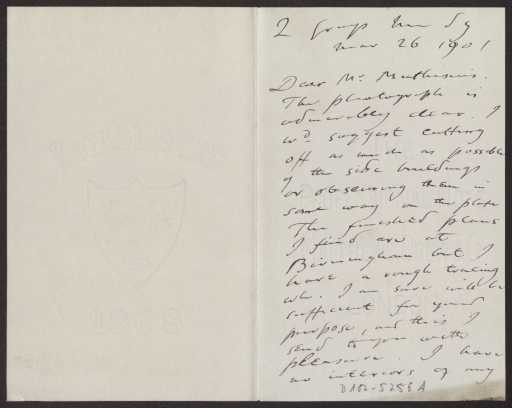 2 Grays Inn Sq
Mar 26 1901
Dear Mr. Muthesius.
The photograph is
admirably clear. I
wd. suggest cutting
off as much as possible
of the side buildings
or obscuring them in
some way on the plate
The finished plans
I find are at
Birmingham but I
have a rough tracing
wh. I am sure will be
sufficient for your
purpose, and this I
send to you with
pleasure. I have
no interiors of any
D102-5256 A